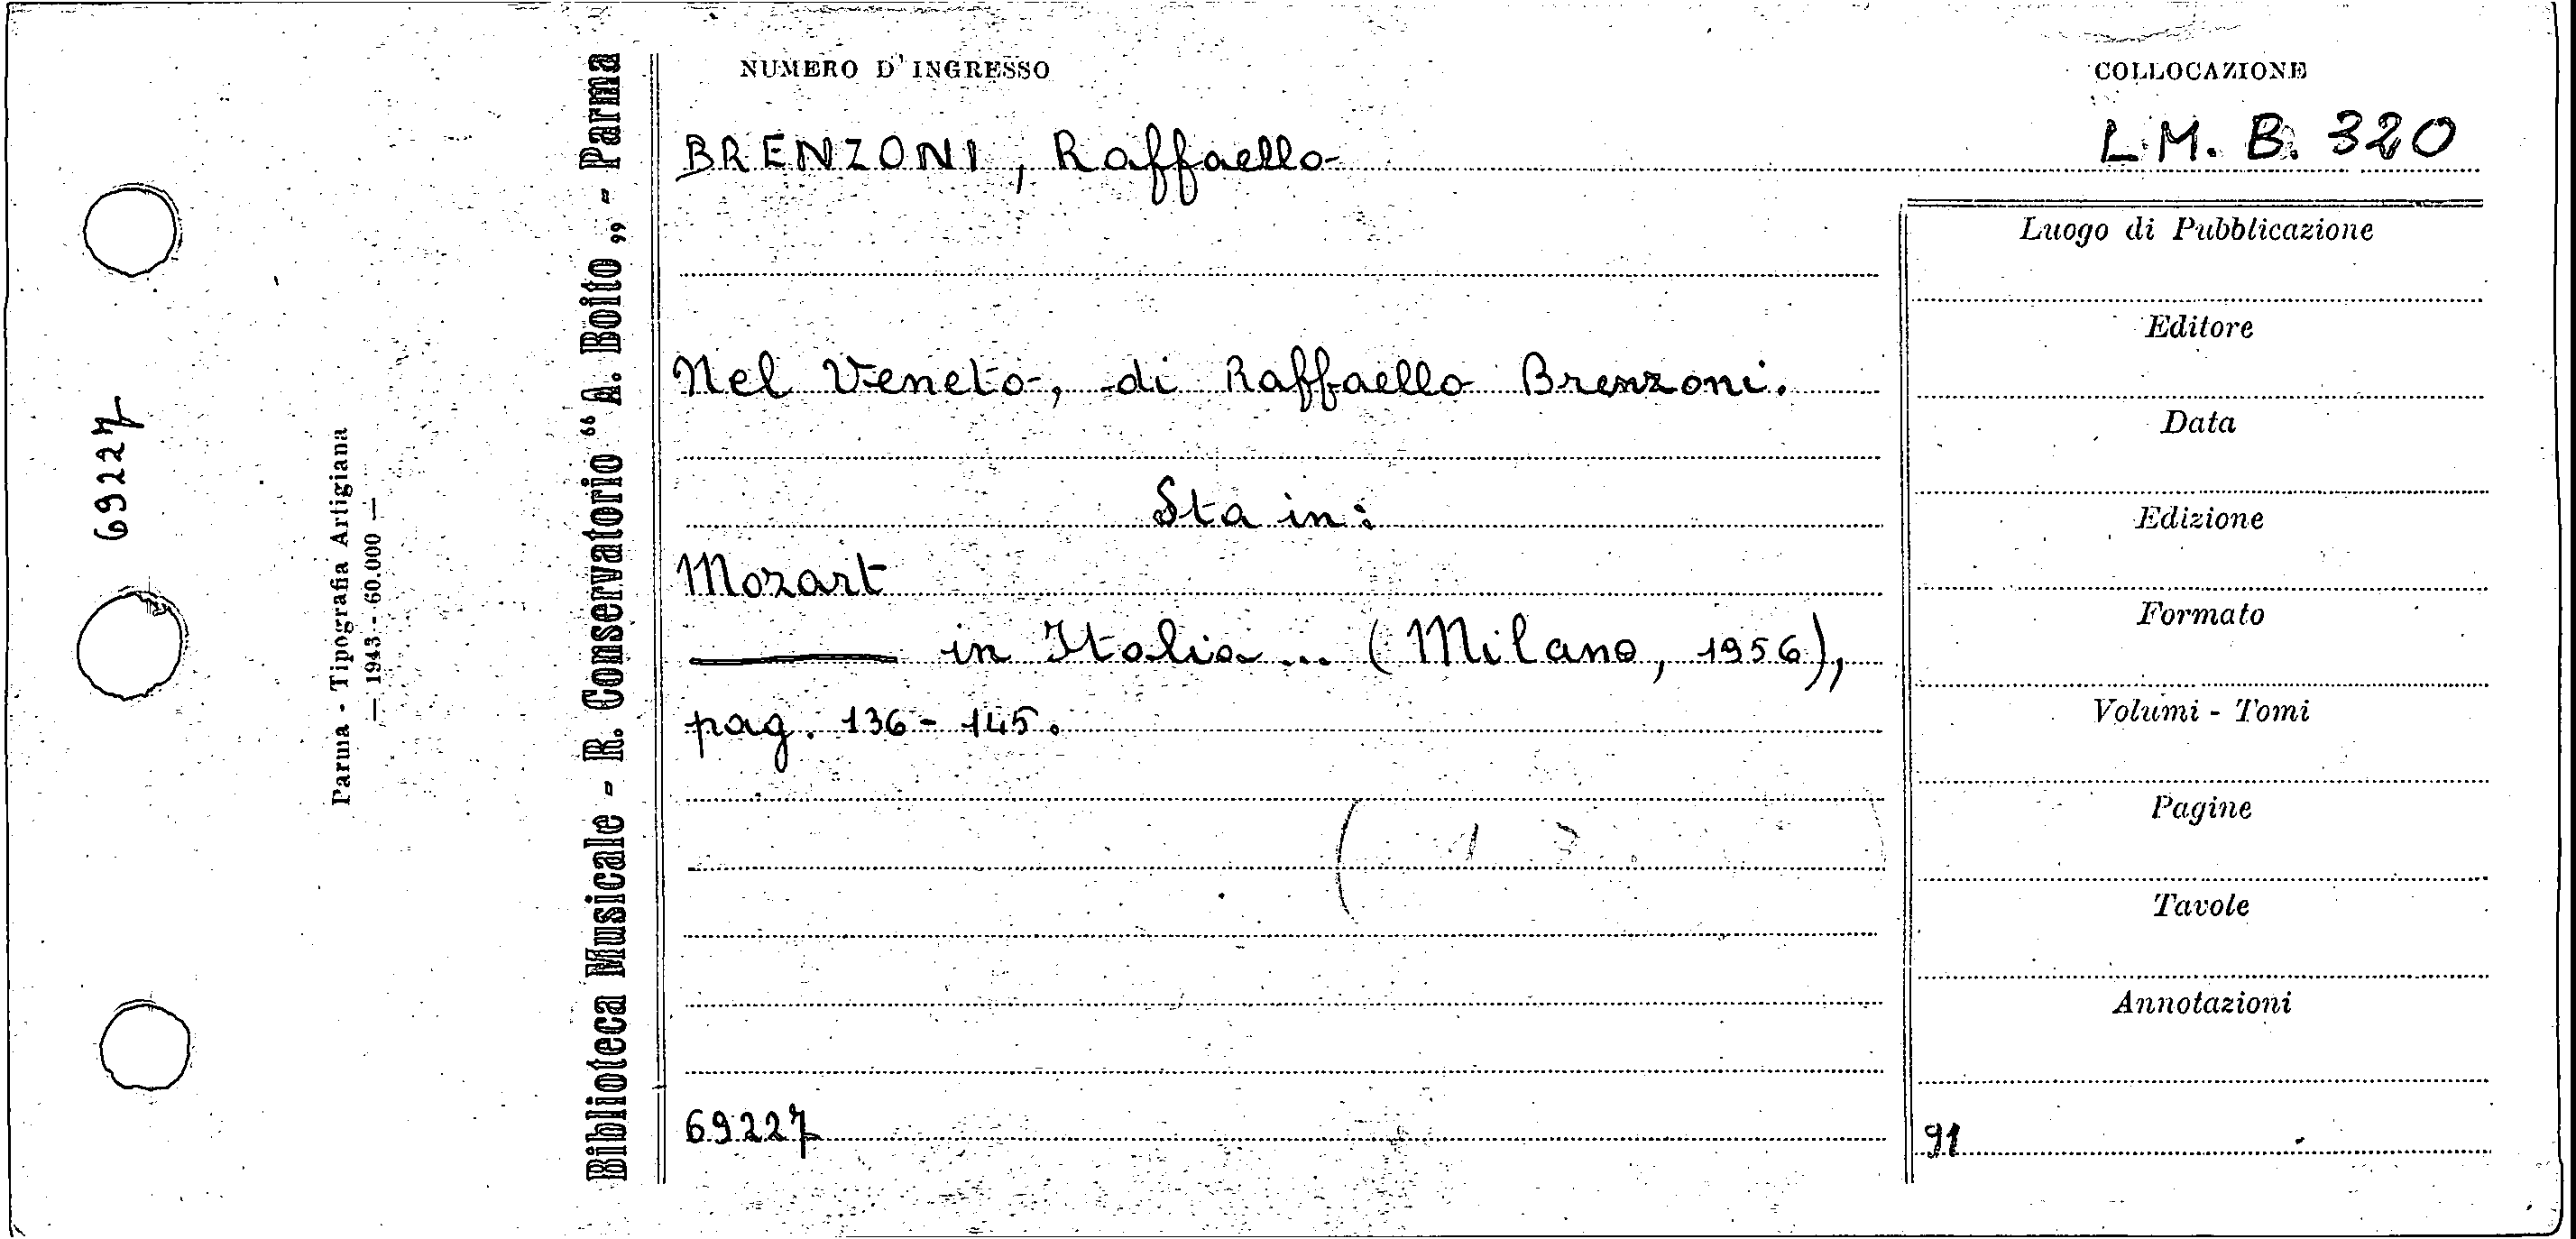 69227
Parma - Tipografia Artigiana
— 1943 - 60.000 —
Biblioteca Musicale - R. Conservatorio “A. Boito„ - Parma
NUMERO D'INGRESSO
COLLOCAZIONE
BRENZONI, Raffaello
L.M. B. 320
Nel Veneto, di Raffaello Brenzoni.
Sta in:
Mozart
——— in Italia... (Milano, 1956),
pag. 136-145.
69227
Luogo di Pubblicazione
Editore
Data
Edizione
Formato
Volumi - Tomi
Pagine
Tavole
Annotazioni
91